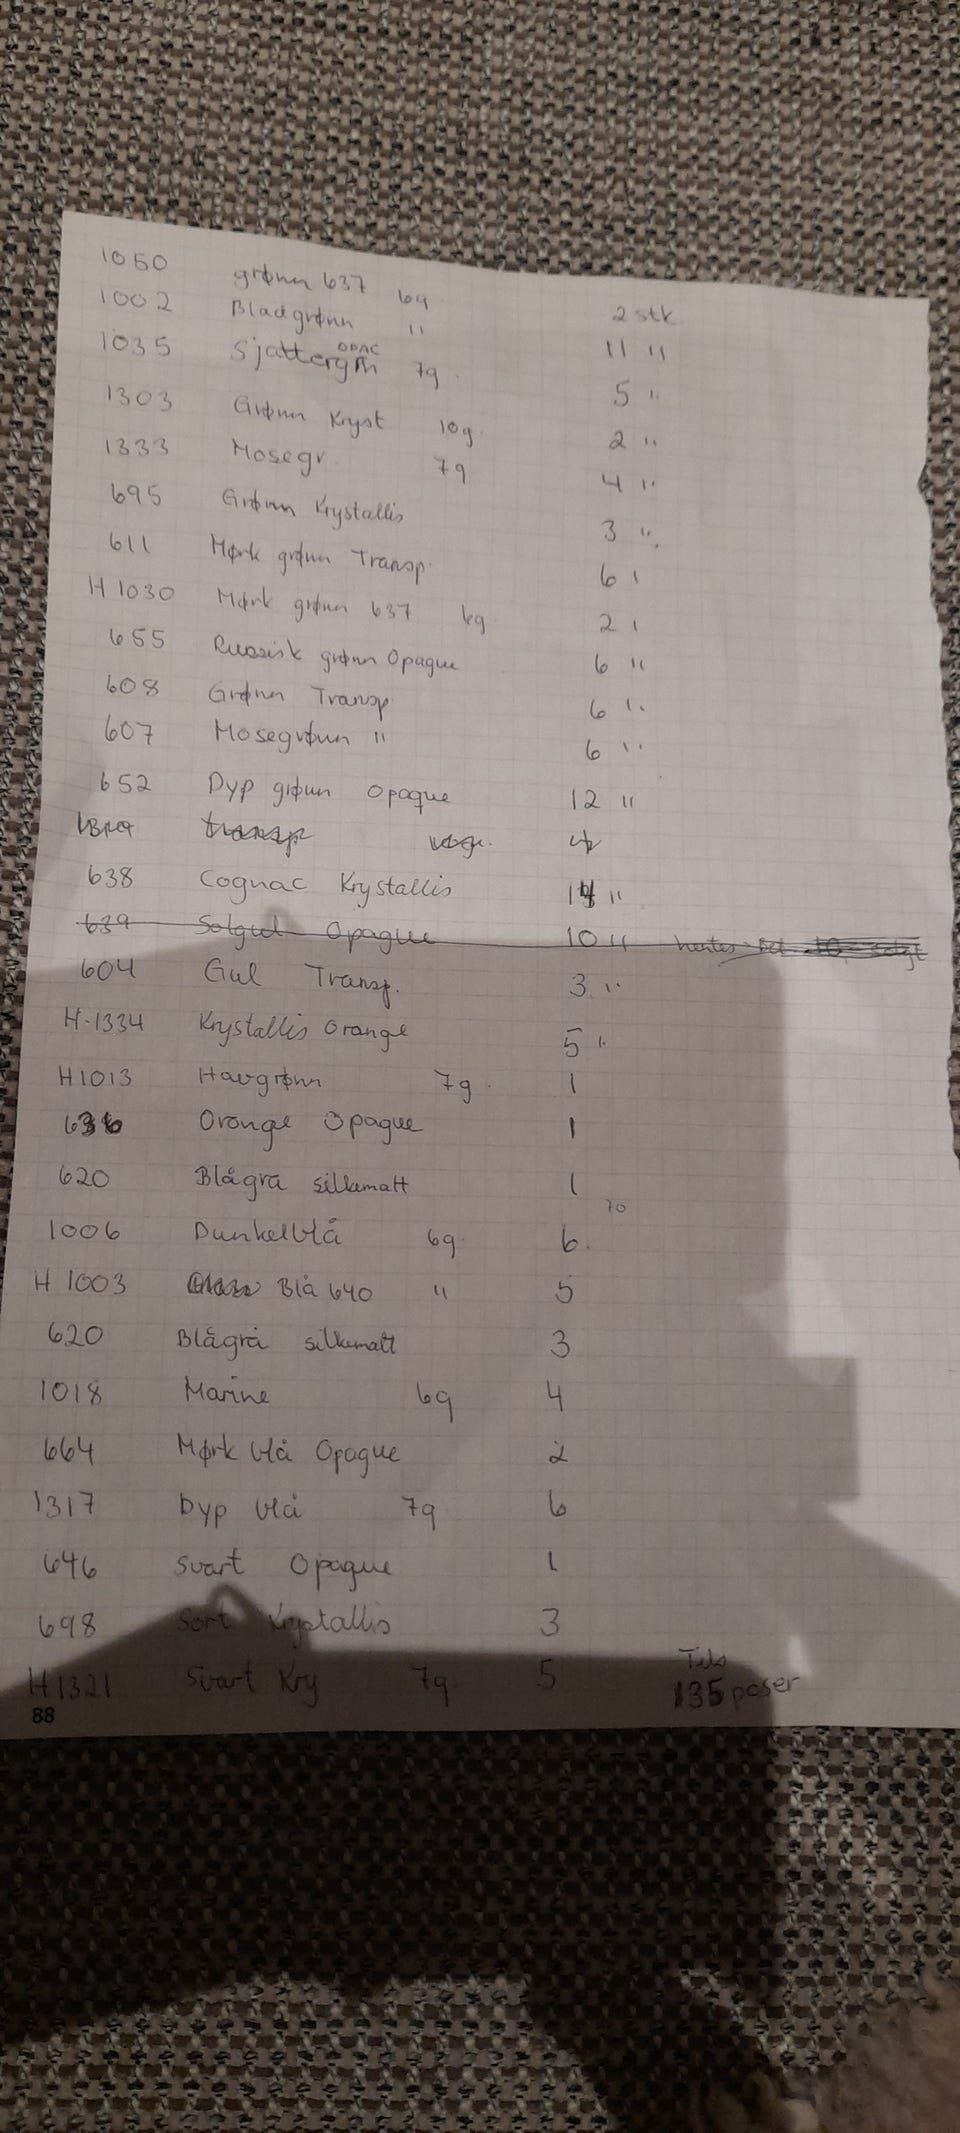 1050 grønn 637 6g 2 stk
1002 Bladgrønn " 11 "
1035 Sjattergrn OPAC 7g. 5 "
1303 Grønn Kryst 10g 2 "
1333 Mosegr. 7g 4 "
695 Grønn Krystallis 3 "
611 Mørk grønn Transp. 6 "
H 1030 Mørk grønn 637 6g 2 "
655 Russisk grønn Opaque 6 "
608 Grønn Transp 6 "
607 Mosegrønn " 6 "
652 Dyp grønn Opaque 12 "
transp
638 Cognac Krystallis "
639 Solgul Opaque 10 "
604 Gul Transp. 3 "
H-1334 Krystallis Orange 5 "
H1013 Havgrønn 7g. 1
636 Orange Opaque 1
620 Blågrå silkematt 1
70
1006 Dunkelblå 6g. 6.
H 1003 Blå 640 " 5
620 Blågrå silkematt 3
1018 Marine 6g 4
664 Mørk blå Opaque 2
1317 Dyp blå 7g 6
646 Svart Opaque 1
698 Sort Krystallis 3
H1321 Svart Kry 7g. 5 135 poser
88